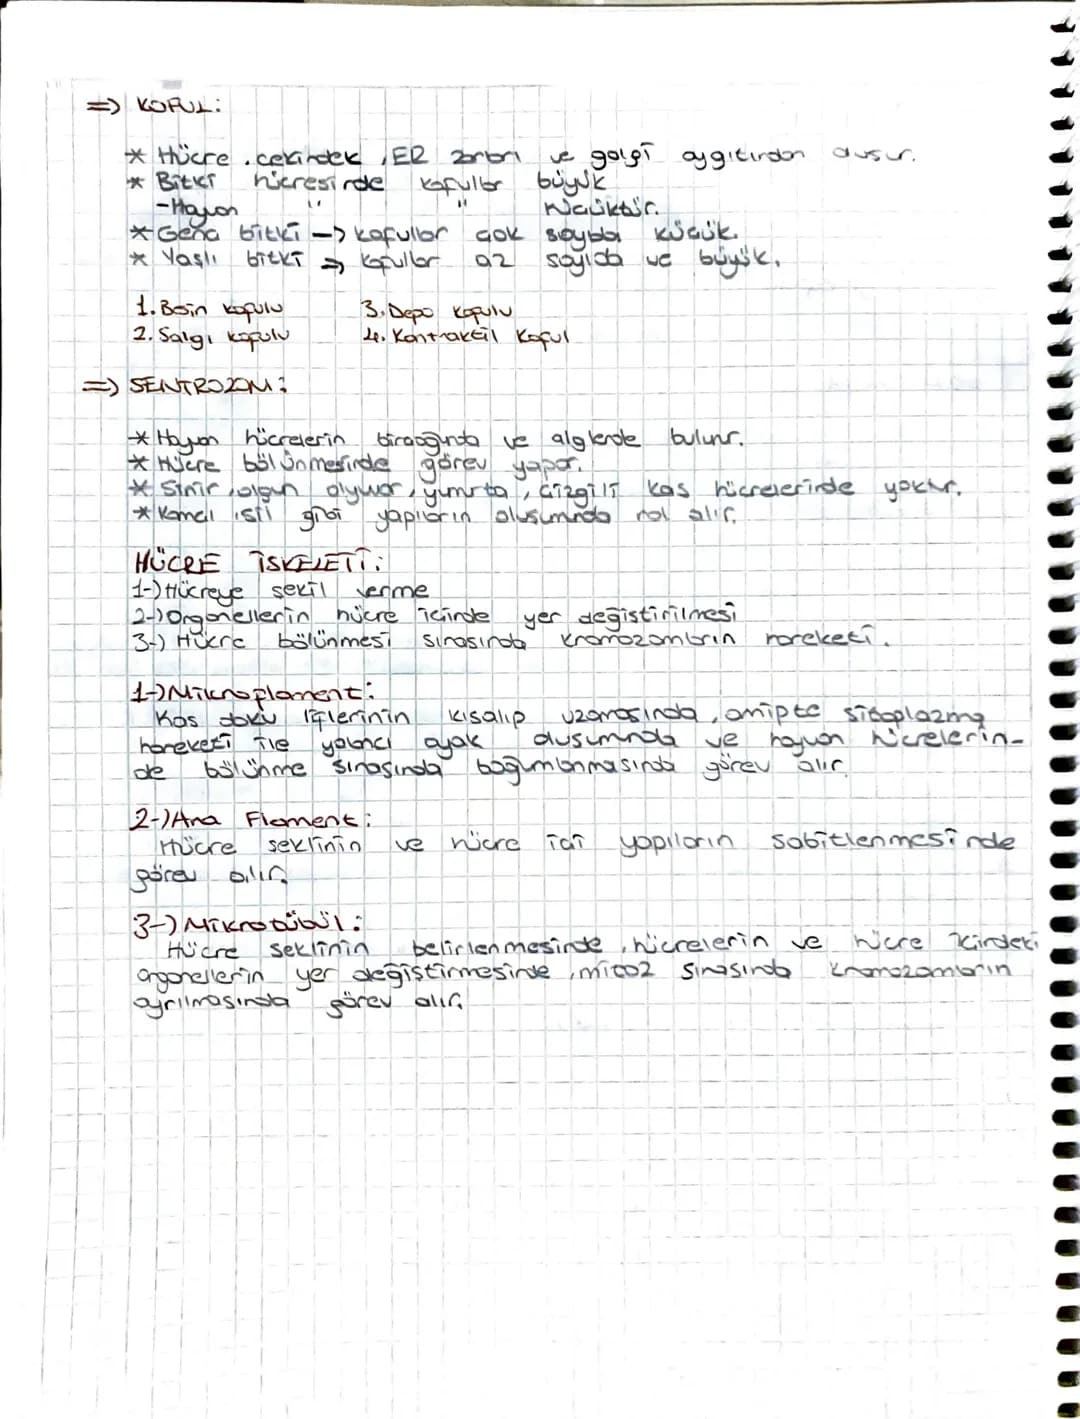 => KOFUL:
* Hücre, çekirdek, ER zarları ve golgi aygıtından oluşur.
* Bitki hücresinde kofullar büyük
-Hayvan " " küçüktür.
* Genç bitki -> kofullar çok sayıda küçük.
* Yaşlı bitki => kofullar az sayıda ve büyük.
1. Besin kofulu 3. Depo kofulu
2. Salgı kofulu 4. Kontraktil koful
=> SENTROZOM:
* Hayvan hücrelerin birçoğunda ve alglerde bulunur.
* Hücre bölünmesinde görev yapar.
* Sinir, olgun alyuvar, yumurta, çizgili kas hücrelerinde yoktur.
* Kamçı, sil gibi yapıların oluşumunda rol alır.
HÜCRE İSKELETİ:
1-) Hücreye şekil verme
2-) Organellerin hücre içinde yer değiştirilmesi
3-) Hücre bölünmesi sırasında kromozomların hareketi.
1-) Mikroflament:
Kas doku liflerinin kısalıp uzamasında, amipte sitoplazma
hareketi ile yalancı ayak oluşumunda ve hayvan hücrelerin-
de bölünme sırasında boğumlanmasında görev alır.
2-) Ara Flament:
Hücre şeklinin ve hücre içi yapıların sabitlenmesinde
görev alır.
3-) Mikrotübül:
Hücre şeklinin belirlenmesinde, hücrelerin ve hücre içindeki
organellerin yer değiştirmesinde, mitoz sırasında kromozomların
ayrılmasında görev alır.